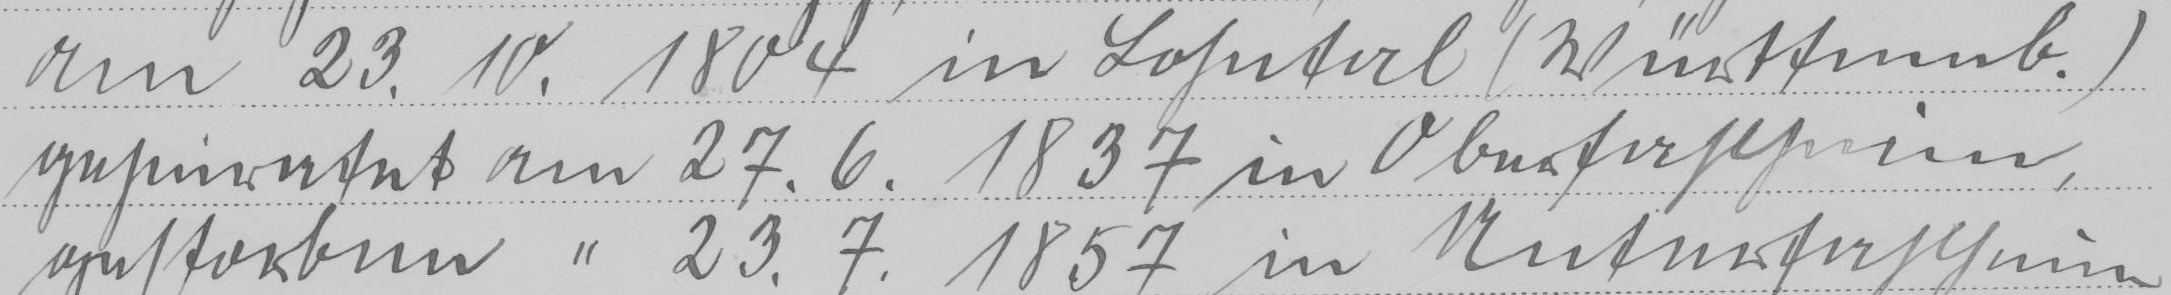 am 23. 10. 1804 in Lossital (Württemb.)
geheiratet am 27. 6. 1837 in Oberhasselheim,
gestorben " 23. 7. 1857 in